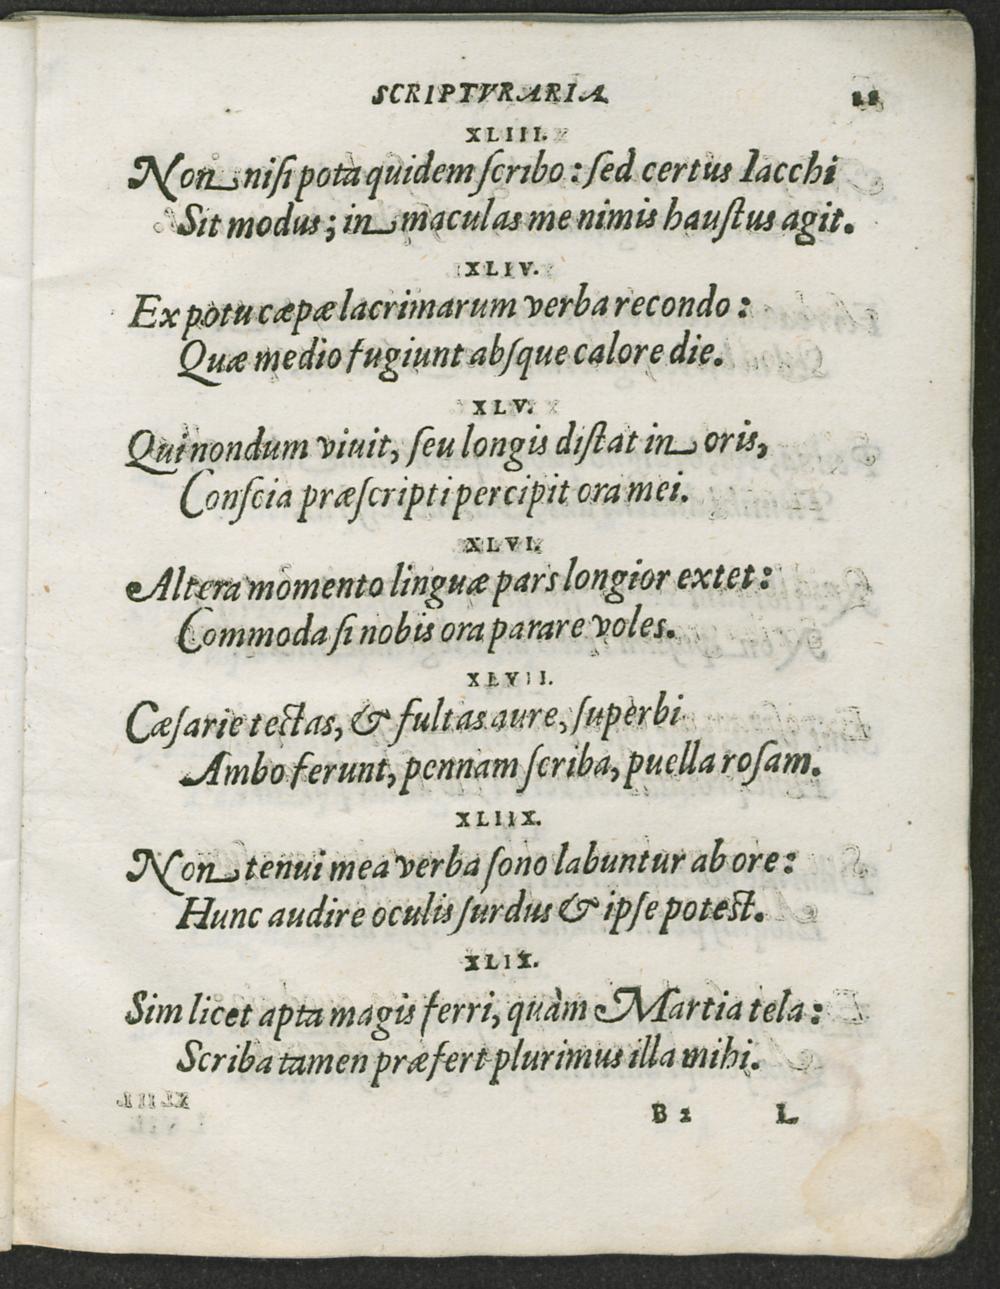 SCRIPTVRARIA
XLIII.
Non niſi pota quidem ſcribo: ſed certus Iacchi
Sit modus; in maculas me nimis hauſtus agit.
XLIV.
Ex potu cæpæ lacrimarum verba recondo:
Quæ medio fugiunt abſque calore die.
XLV.
Qui nondum viuit, ſeu longis diſtat in oris,
Conſcia præſcripti percipit ora mei.
XLVI.
Altera momento linguæ pars longior extet:
Commoda ſi nobis ora parare voles.
XLVII.
Cæſarie tectas, & fultas aure, ſuperbi
Ambo ferunt, pennam ſcriba, puella roſam.
XLIIX.
Non tenui mea verba ſono labuntur ab ore:
Hunc audire oculis ſurdus & ipſe poteſt.
XLIX.
Sim licet apta magis ferri, quàm Martia tela:
Scriba tamen præfert plurimus illa mihi.
B 2 L.